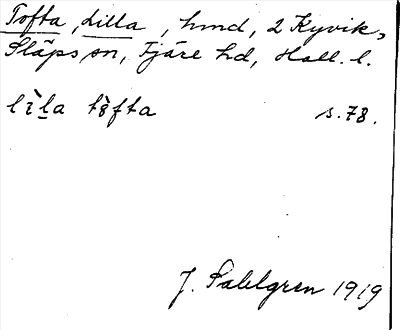 Tofta, Lilla, hmd, 2 Kyvik,
Släps sn, Fjäre hd, Hall. l.
lìla tòfta s. 78.
J. Sahlgren 1919